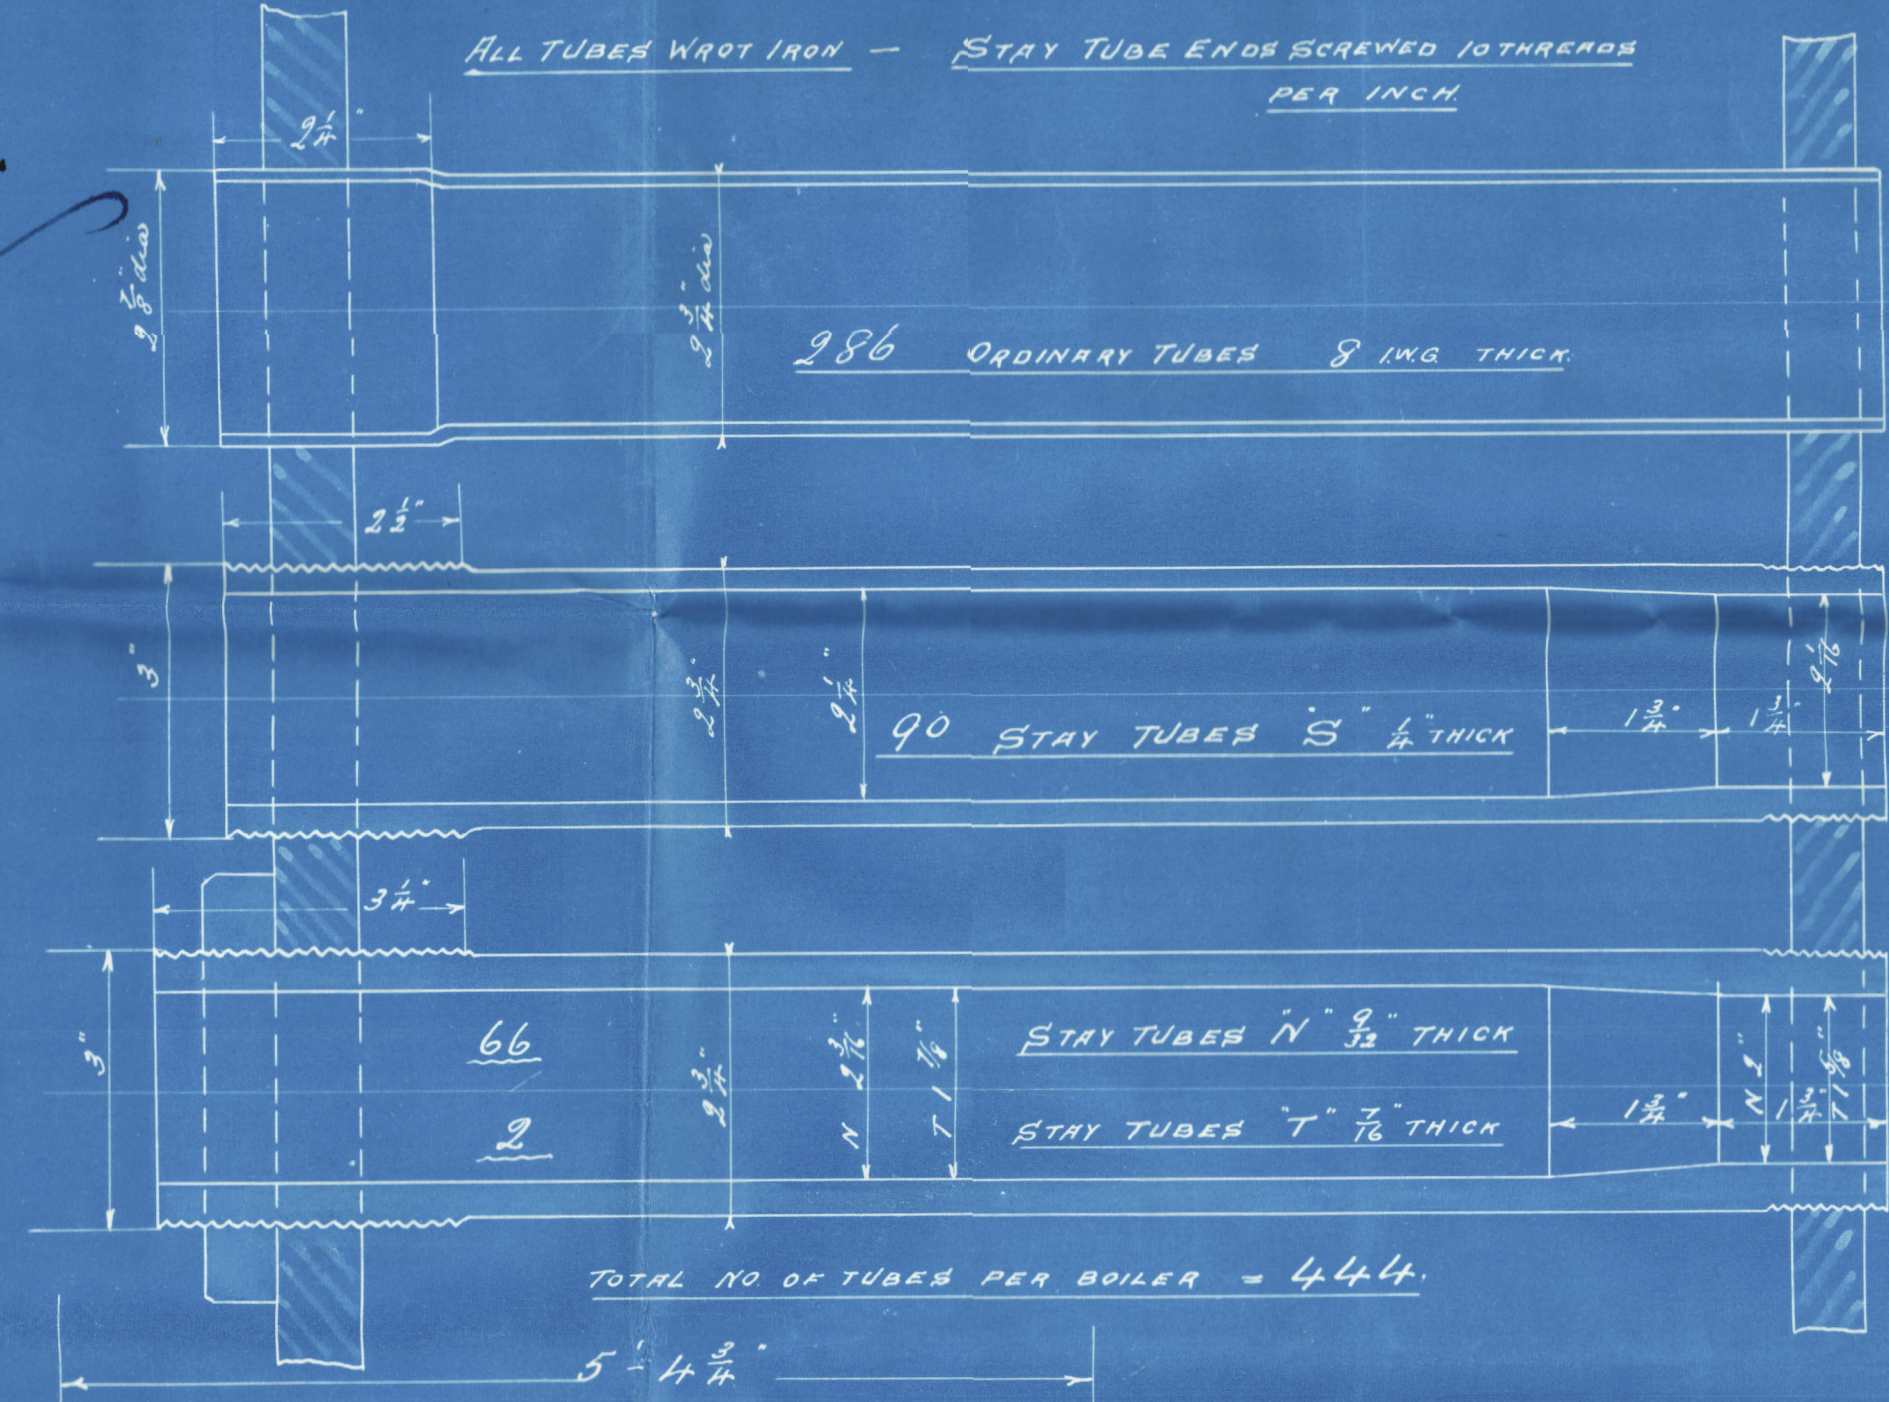 ALL TUBES WROT IRON — STAY TUBE ENDS SCREWED 10 THREADS
PER INCH.
2 1/4"
2 7/8" dia
2 3/4" dia
286 ORDINARY TUBES 8 I.W.G. THICK.
2 1/2"
3"
2 3/4"
2 1/4"
90 STAY TUBES "S" 1/4" THICK
1 3/4"
1 3/4"
2 1/16"
3 1/4"
3"
66
2
2 3/4"
N 2 3/16"
T 1 7/8"
STAY TUBES "N" 9/32" THICK
STAY TUBES "T" 7/16" THICK
1 3/4"
N 2"
1 3/4"
T 1 5/8"
TOTAL NO. OF TUBES PER BOILER = 444.
5'-4 3/4"